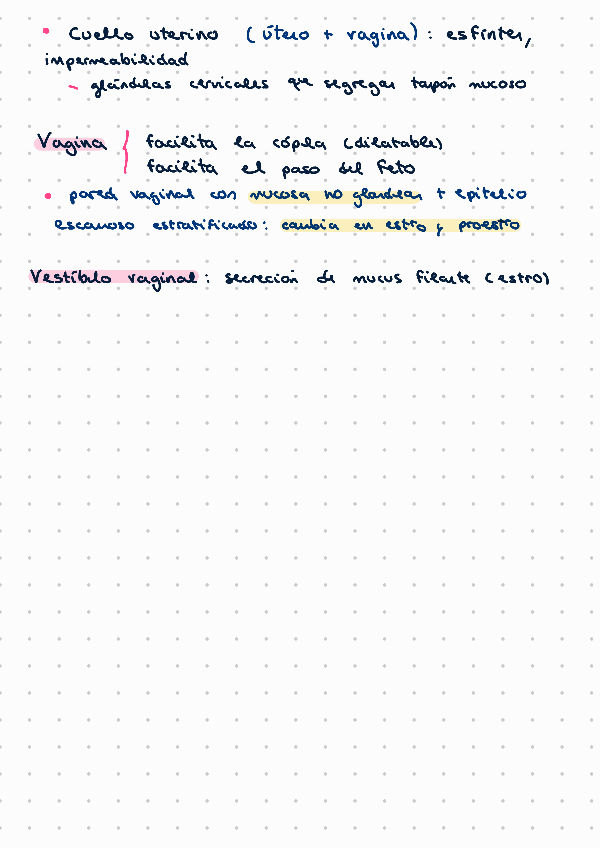 • Cuello uterino (útero + vagina) : esfínter,
impermeabilidad
- glándulas cervicales que segregan tapón mucoso
Vagina { facilita la cópula (dilatable)
facilita el paso del feto
• pared vaginal con mucosa no glandular + epitelio
escamoso estratificado : cambia en estro y proestro
Vestíbulo vaginal : secreción de mucus filante (estro)